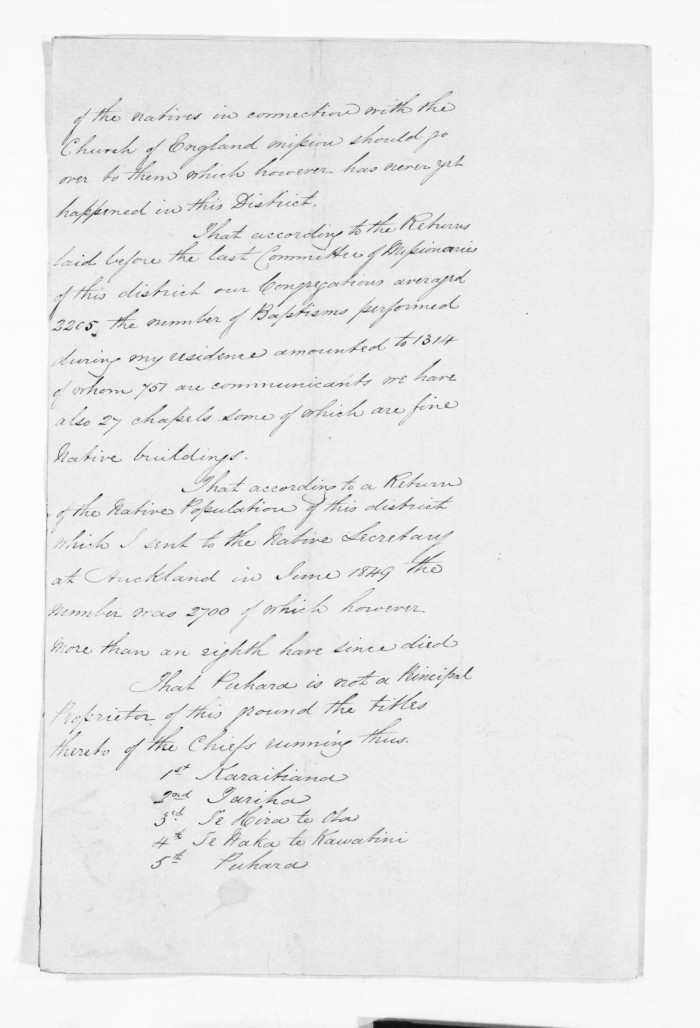 of the natives in connection with the
Church of England mission should go
over to them which however has never yet
happened in this District.
That according to the Returns
laid before the last Committee of Missionaries
of this district our Congregations averaged
2205, the number of Baptisms performed
during my residence amounted to 1314
of whom 751 are communicants we have
also 27 chapels some of which are fine
Native buildings.
That according to a Return
of the Native Population of this district
which I sent to the Native Secretary
at Auckland in June 1849 the
number was 2700 of which however
more than an eighth have since died
That Puhara is not a Principal
Proprietor of this ground the titles
thereto of the Chiefs running thus.
1st Karaitiana
2nd Tariha
3rd Te Hira te Ota
4th Te Waka te Kawatini
5th Puhara